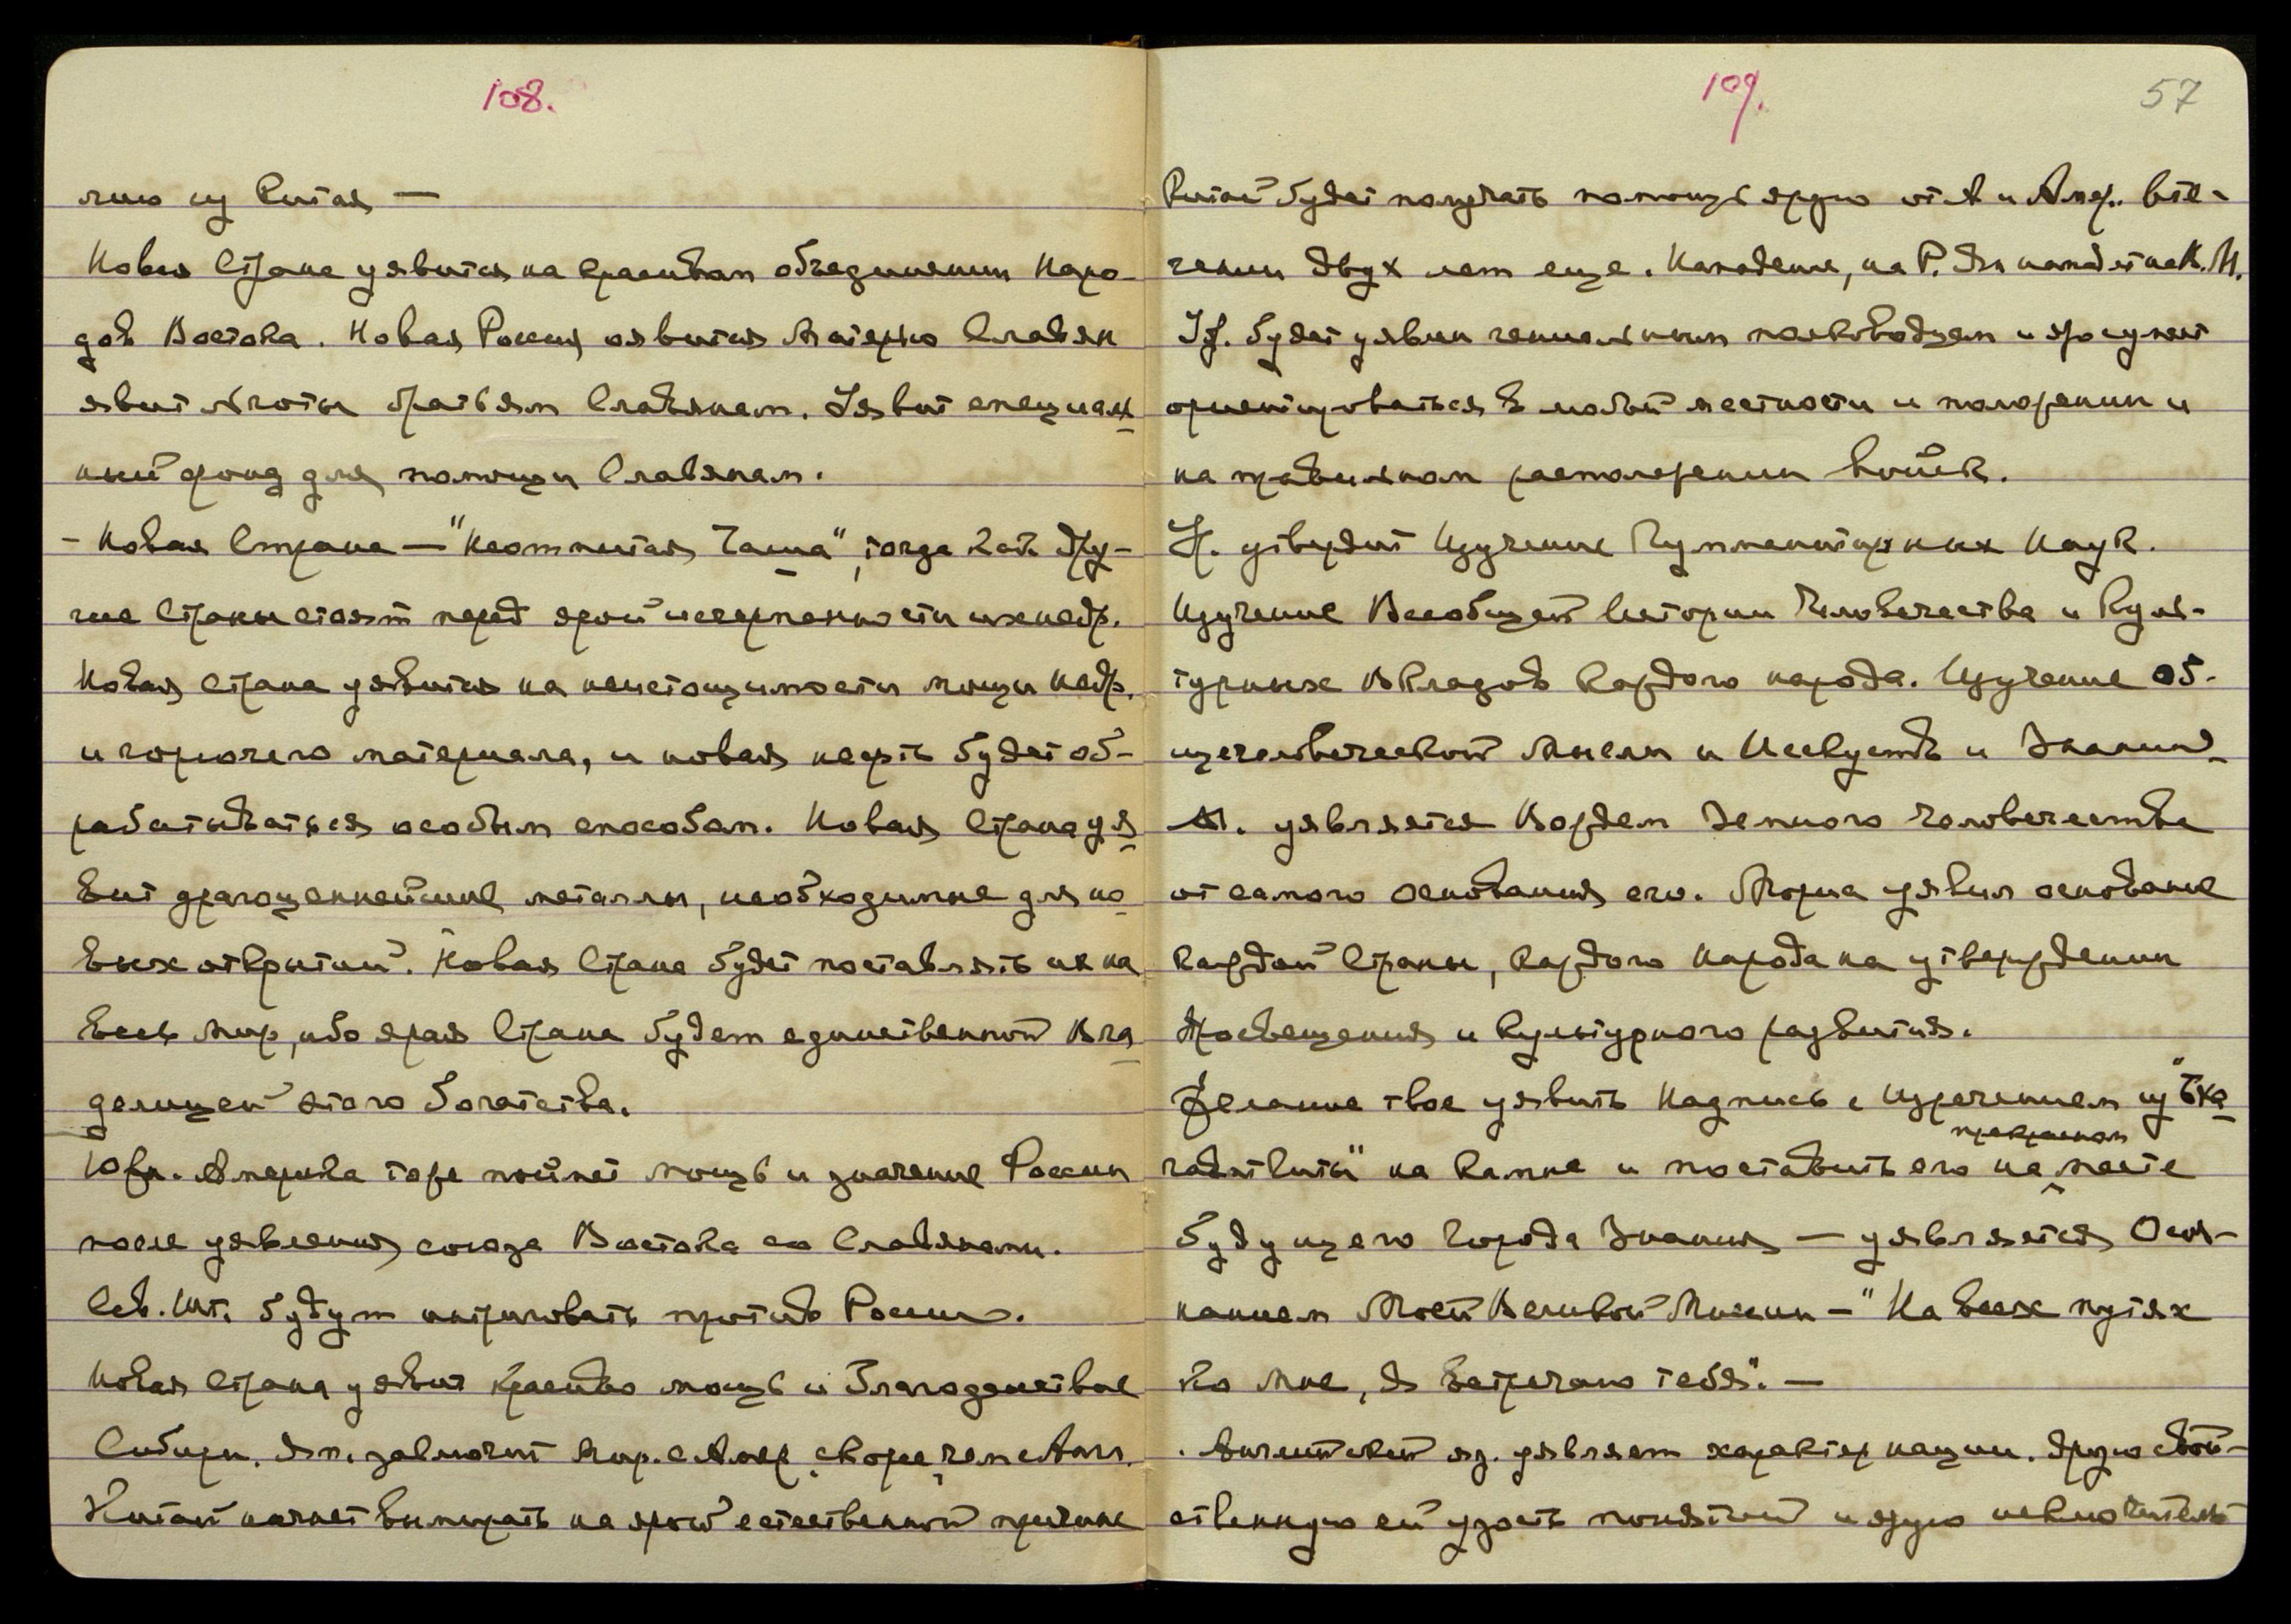 108.
лию из Китая —
Новая Страна уявится на красивом объединении Наро-
дов Востока. Новая Россия оявится Матерью Славян
явит льготы братьям Славянам. Уявит специаль
ный фонд для помощи Славянам.
- Новая Страна — "Неотпитая Чаша", тогда как Дру-
гие Страны стоят перед ярой исчерпанности их недр.
Новая Страна уявится на неистощимости мощи недр.
и горючего материала, и новая нефть будет об-
рабатываться особым способом. Новая Страна уя
вит драгоценнейшие металлы, необходимые для но
вых открытий. Новая Страна будет поставлять их на
весь мир, ибо ярая Страна будет единственной Вла
делицей этого богатства.
Южн. Америка тоже поймет мощь и значение России
после уявления союза Востока со Славянами.
Сев. Шт. будут интриговать против России.
Новая Страна уявит красиво мощь и Благоденствие
Сибири. Яп. заключит мир. с Амер. скорее, чем с Англ.
Китай начнет вымирать на ярой естественной причине
109.
57
Китай будет получать помощь ярую от А и Амер. в те-
чении двух лет еще. Нападение, на Р. Яп нападет на К. М.
Ур. будет уявлен гениальным полководцем и яро сумеет
ориентироваться в любой местности и положении и
на правильном расположении войск.
Ур. утвердит Изучение Гуманитарных Наук.
Изучение Всеобщей Истории Человечества и Куль-
турных Вкладов каждого народа. Изучение Об-
щечеловеческой Мысли и Искусств и Знаний
М. уявляется Вождем Земного Человечества
от самого основания его. Мория уявил основание
каждой Страны, каждого Народа на утверждении
Просвещения и Культурного развития.
Желание твое уявить Надпись с Изречением из "Бха
гават Гиты" на Камне и поставить его на прекрасном месте
будущего Города Знания — уявляется Осно-
ванием Моей Великой Миссии — "На всех путях
ко Мне, Я встречаю тебя". —
. Английский яз. уявляет характер нации. Ярую свой-
ственную ей узость понятий и ярую исключитель